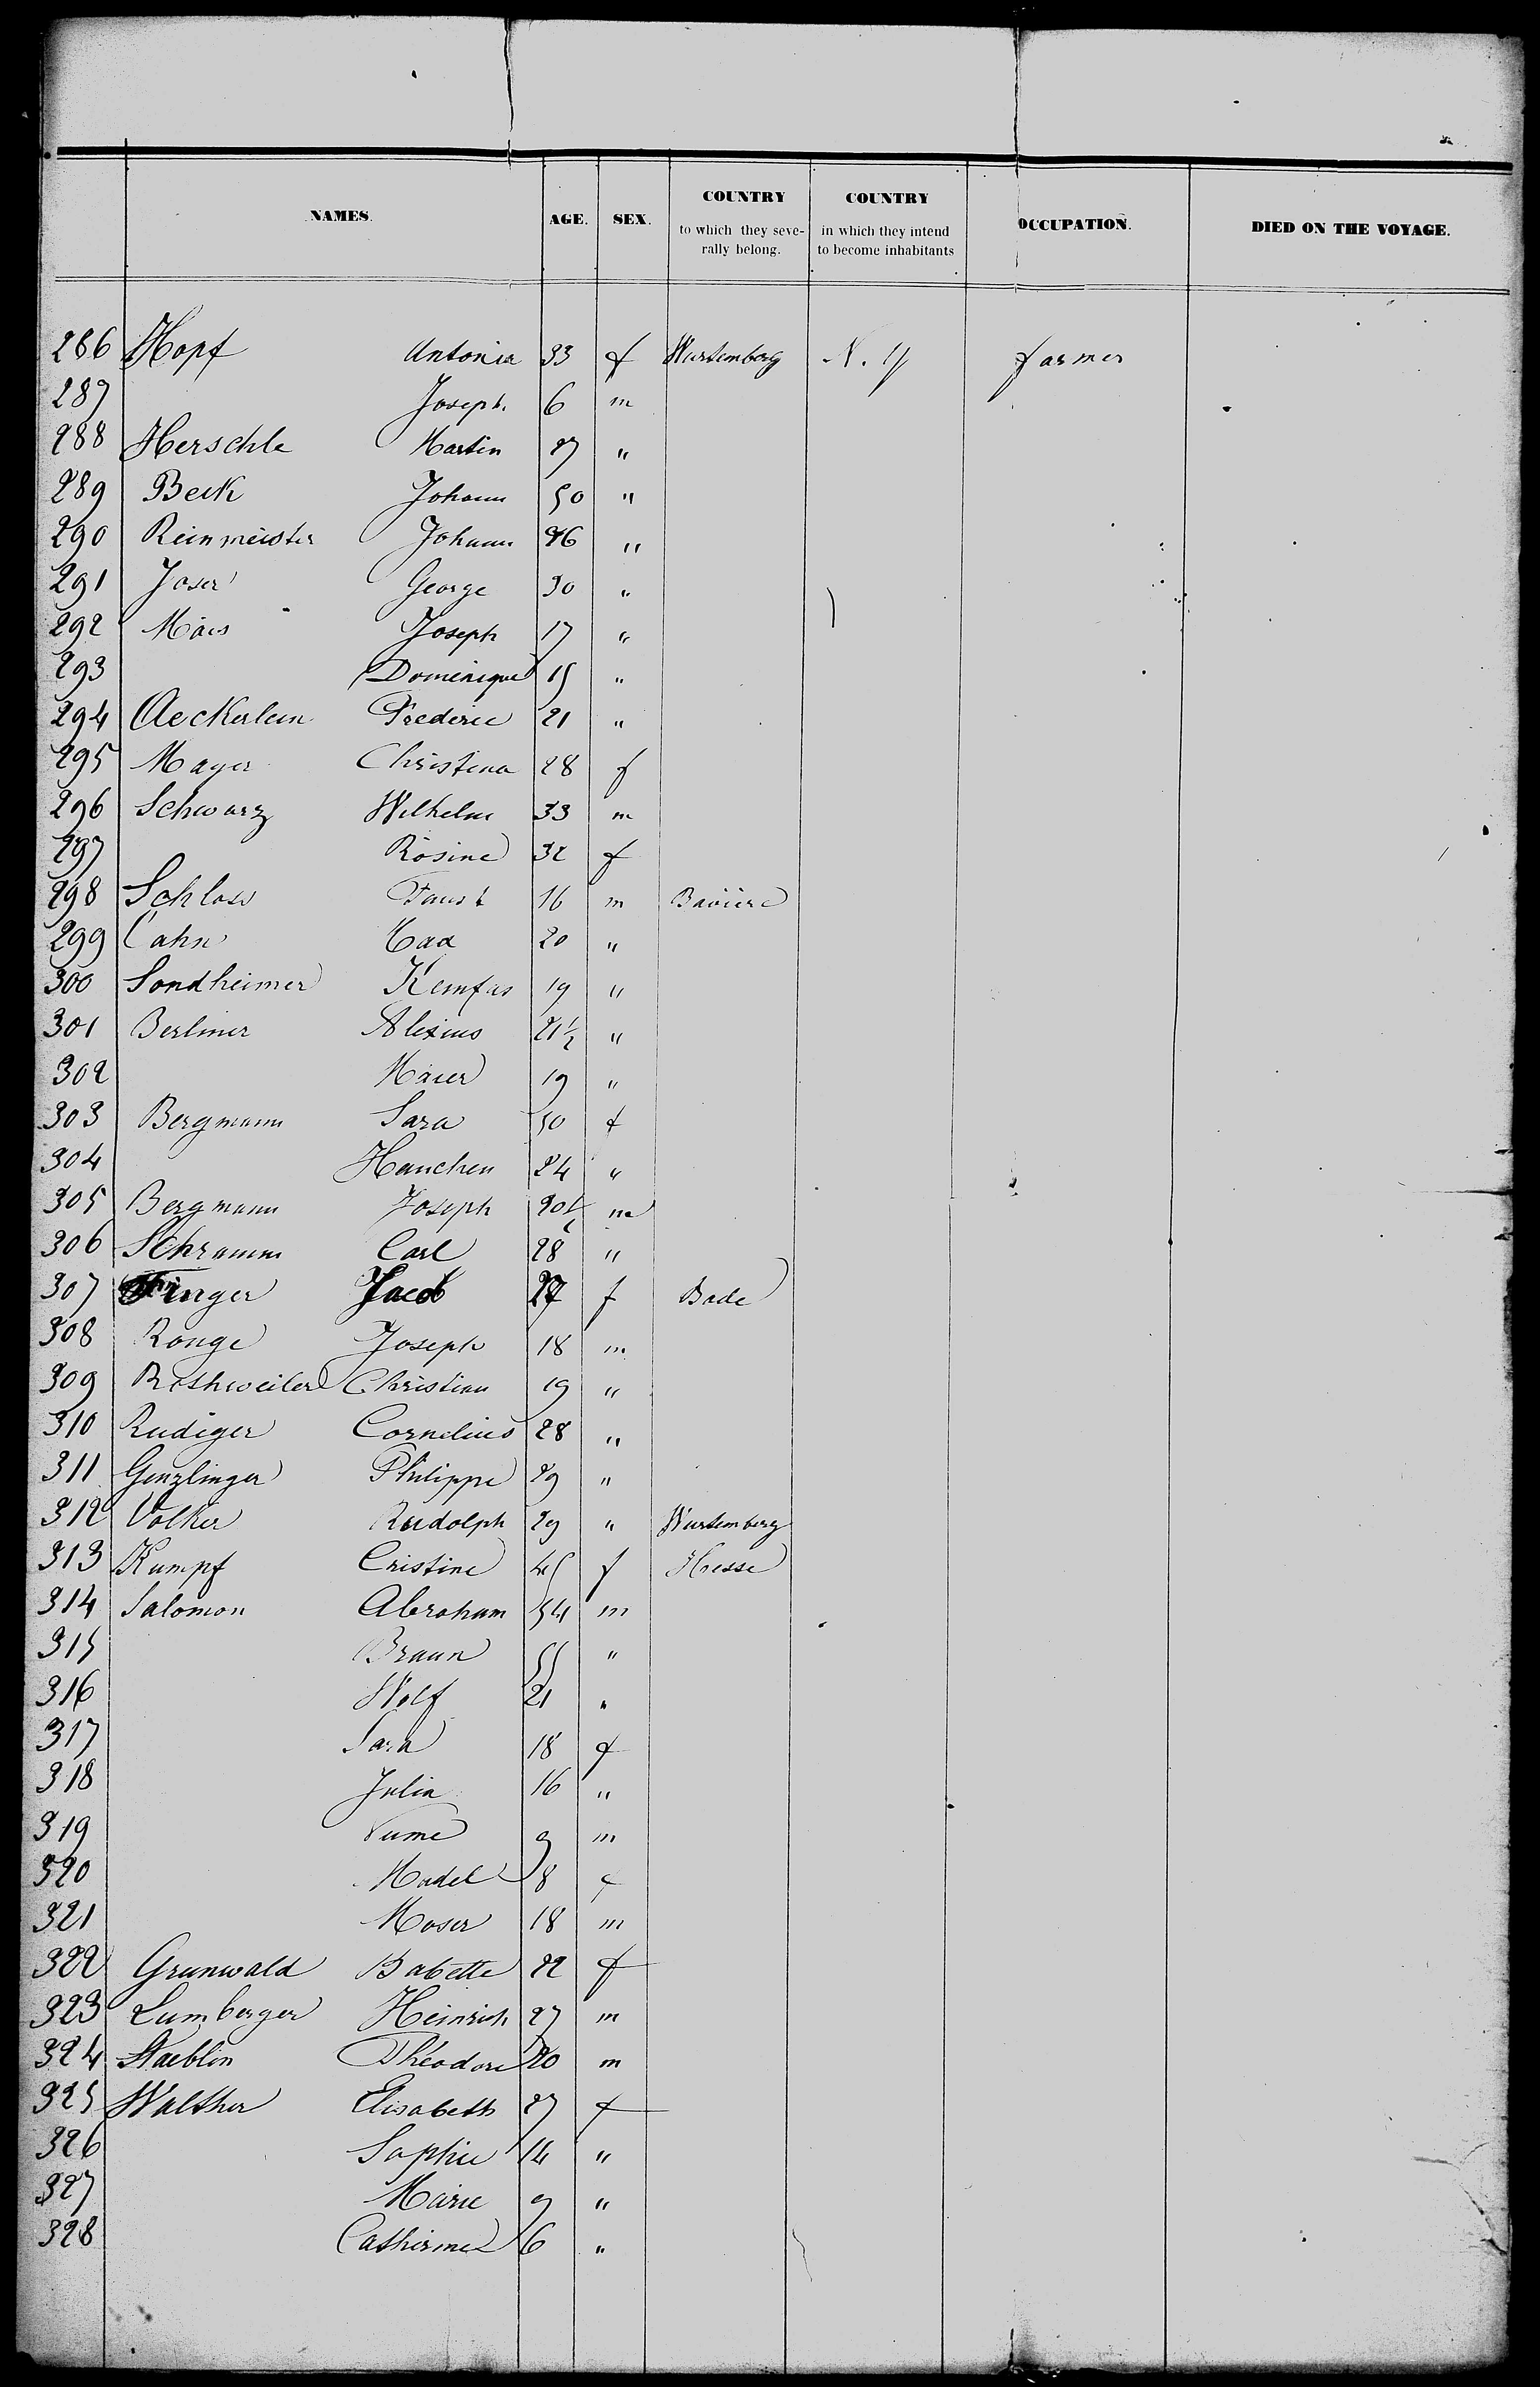 NAMES. AGE. SEX. COUNTRY to which they seve-rally belong. COUNTRY in which they intend to become inhabitants OCCUPATION. DIED ON THE VOYAGE.
286 Hopf Antonia 33 f Wurtemberg N. Y farmer
287 Joseph 6 m
288 Herschle Martin 27 "
289 Beck Johann 50 "
290 Reinmeister Johann 26 "
291 Joser George 30 "
292 Mais Joseph 17 "
293 Dominique 15 "
294 Aeckerlein Frederic 21 "
295 Mayer Christina 28 f
296 Schwarz Wilhelm 33 m
297 Rosine 32 f
298 Schloss Faust 16 m Baviere
299 Cahn Max 20 "
300 Sondheimer Kemfas 19 "
301 Berliner Alexius 21½ "
302 Maier 19 "
303 Bergmann Sara 50 f
304 Hanchen 24 "
305 Bergmann Joseph 20½ m
306 Schramm Carl 28 "
307 Finger Jacob 27 f Bade
308 Ronge Joseph 18 m
309 Rothweiler Christian 19 "
310 Rudiger Cornelius 28 "
311 Genzlinger Philippe 29 "
312 Volker Rudolph 29 " Wurtemberg
313 Kumpf Cristine 45 f Hesse
314 Salomon Abraham 54 m
315 Braun 55 "
316 Wolf 21 "
317 Sara 18 f
318 Julia 16 "
319 9 m
320 Madel 8 f
321 Moser 18 m
322 Grunwald Babette 22 f
323 Lumberger Heinrich 27 m
324 Staeblin Théodore 20 m
325 Walther Elisabeth 27 f
326 Sophie 14 "
327 Marie 9 "
328 Catherine 6 "